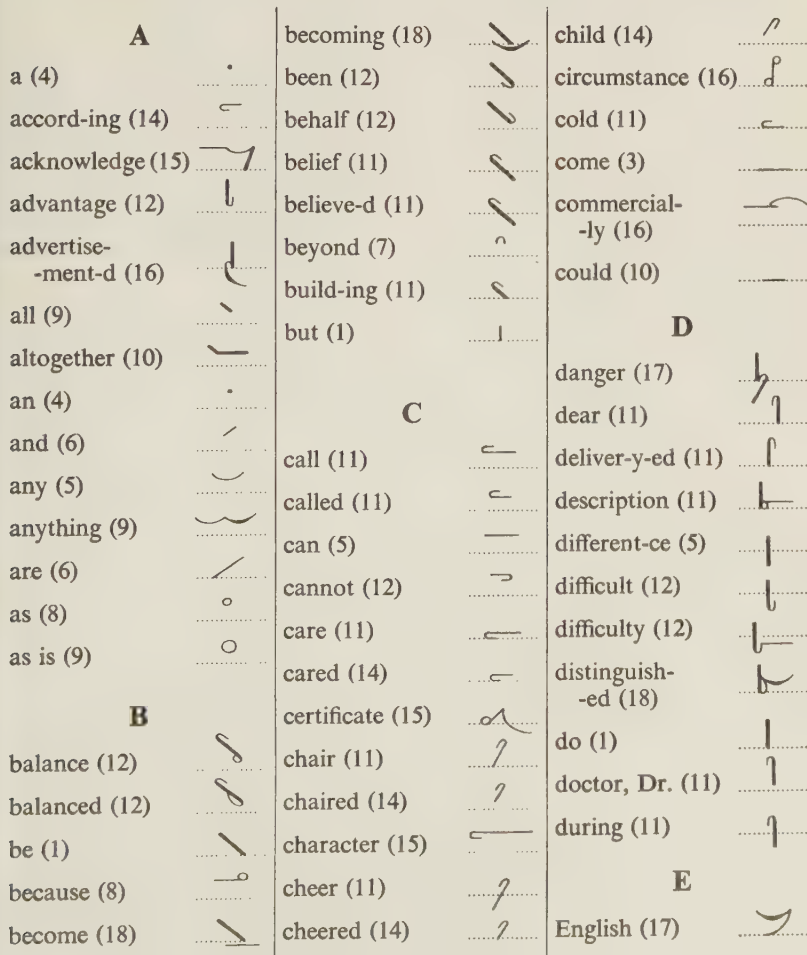 A
a (4)
accord-ing (14)
acknowledge (15)
advantage (12)
advertise-
-ment-d (16)
all (9)
altogether (10)
an (4)
and (6)
any (5)
anything (9)
are (6)
as (8)
as is (9)
B
balance (12)
balanced (12)
be (1)
because (8)
become (18)
becoming (18)
been (12)
behalf (12)
belief (11)
believe-d (11)
beyond (7)
build-ing (11)
but (1)
C
call (11)
called (11)
can (5)
cannot (12)
care (11)
cared (14)
certificate (15)
chair (11)
chaired (14)
character (15)
cheer (11)
cheered (14)
child (14)
circumstance (16)
cold (11)
come (3)
commercial-
-ly (16)
could (10)
D
danger (17)
dear (11)
deliver-y-ed (11)
description (11)
different-ce (5)
difficult (12)
difficulty (12)
distinguish-
-ed (18)
do (1)
doctor, Dr. (11)
during (11)
E
English (17)